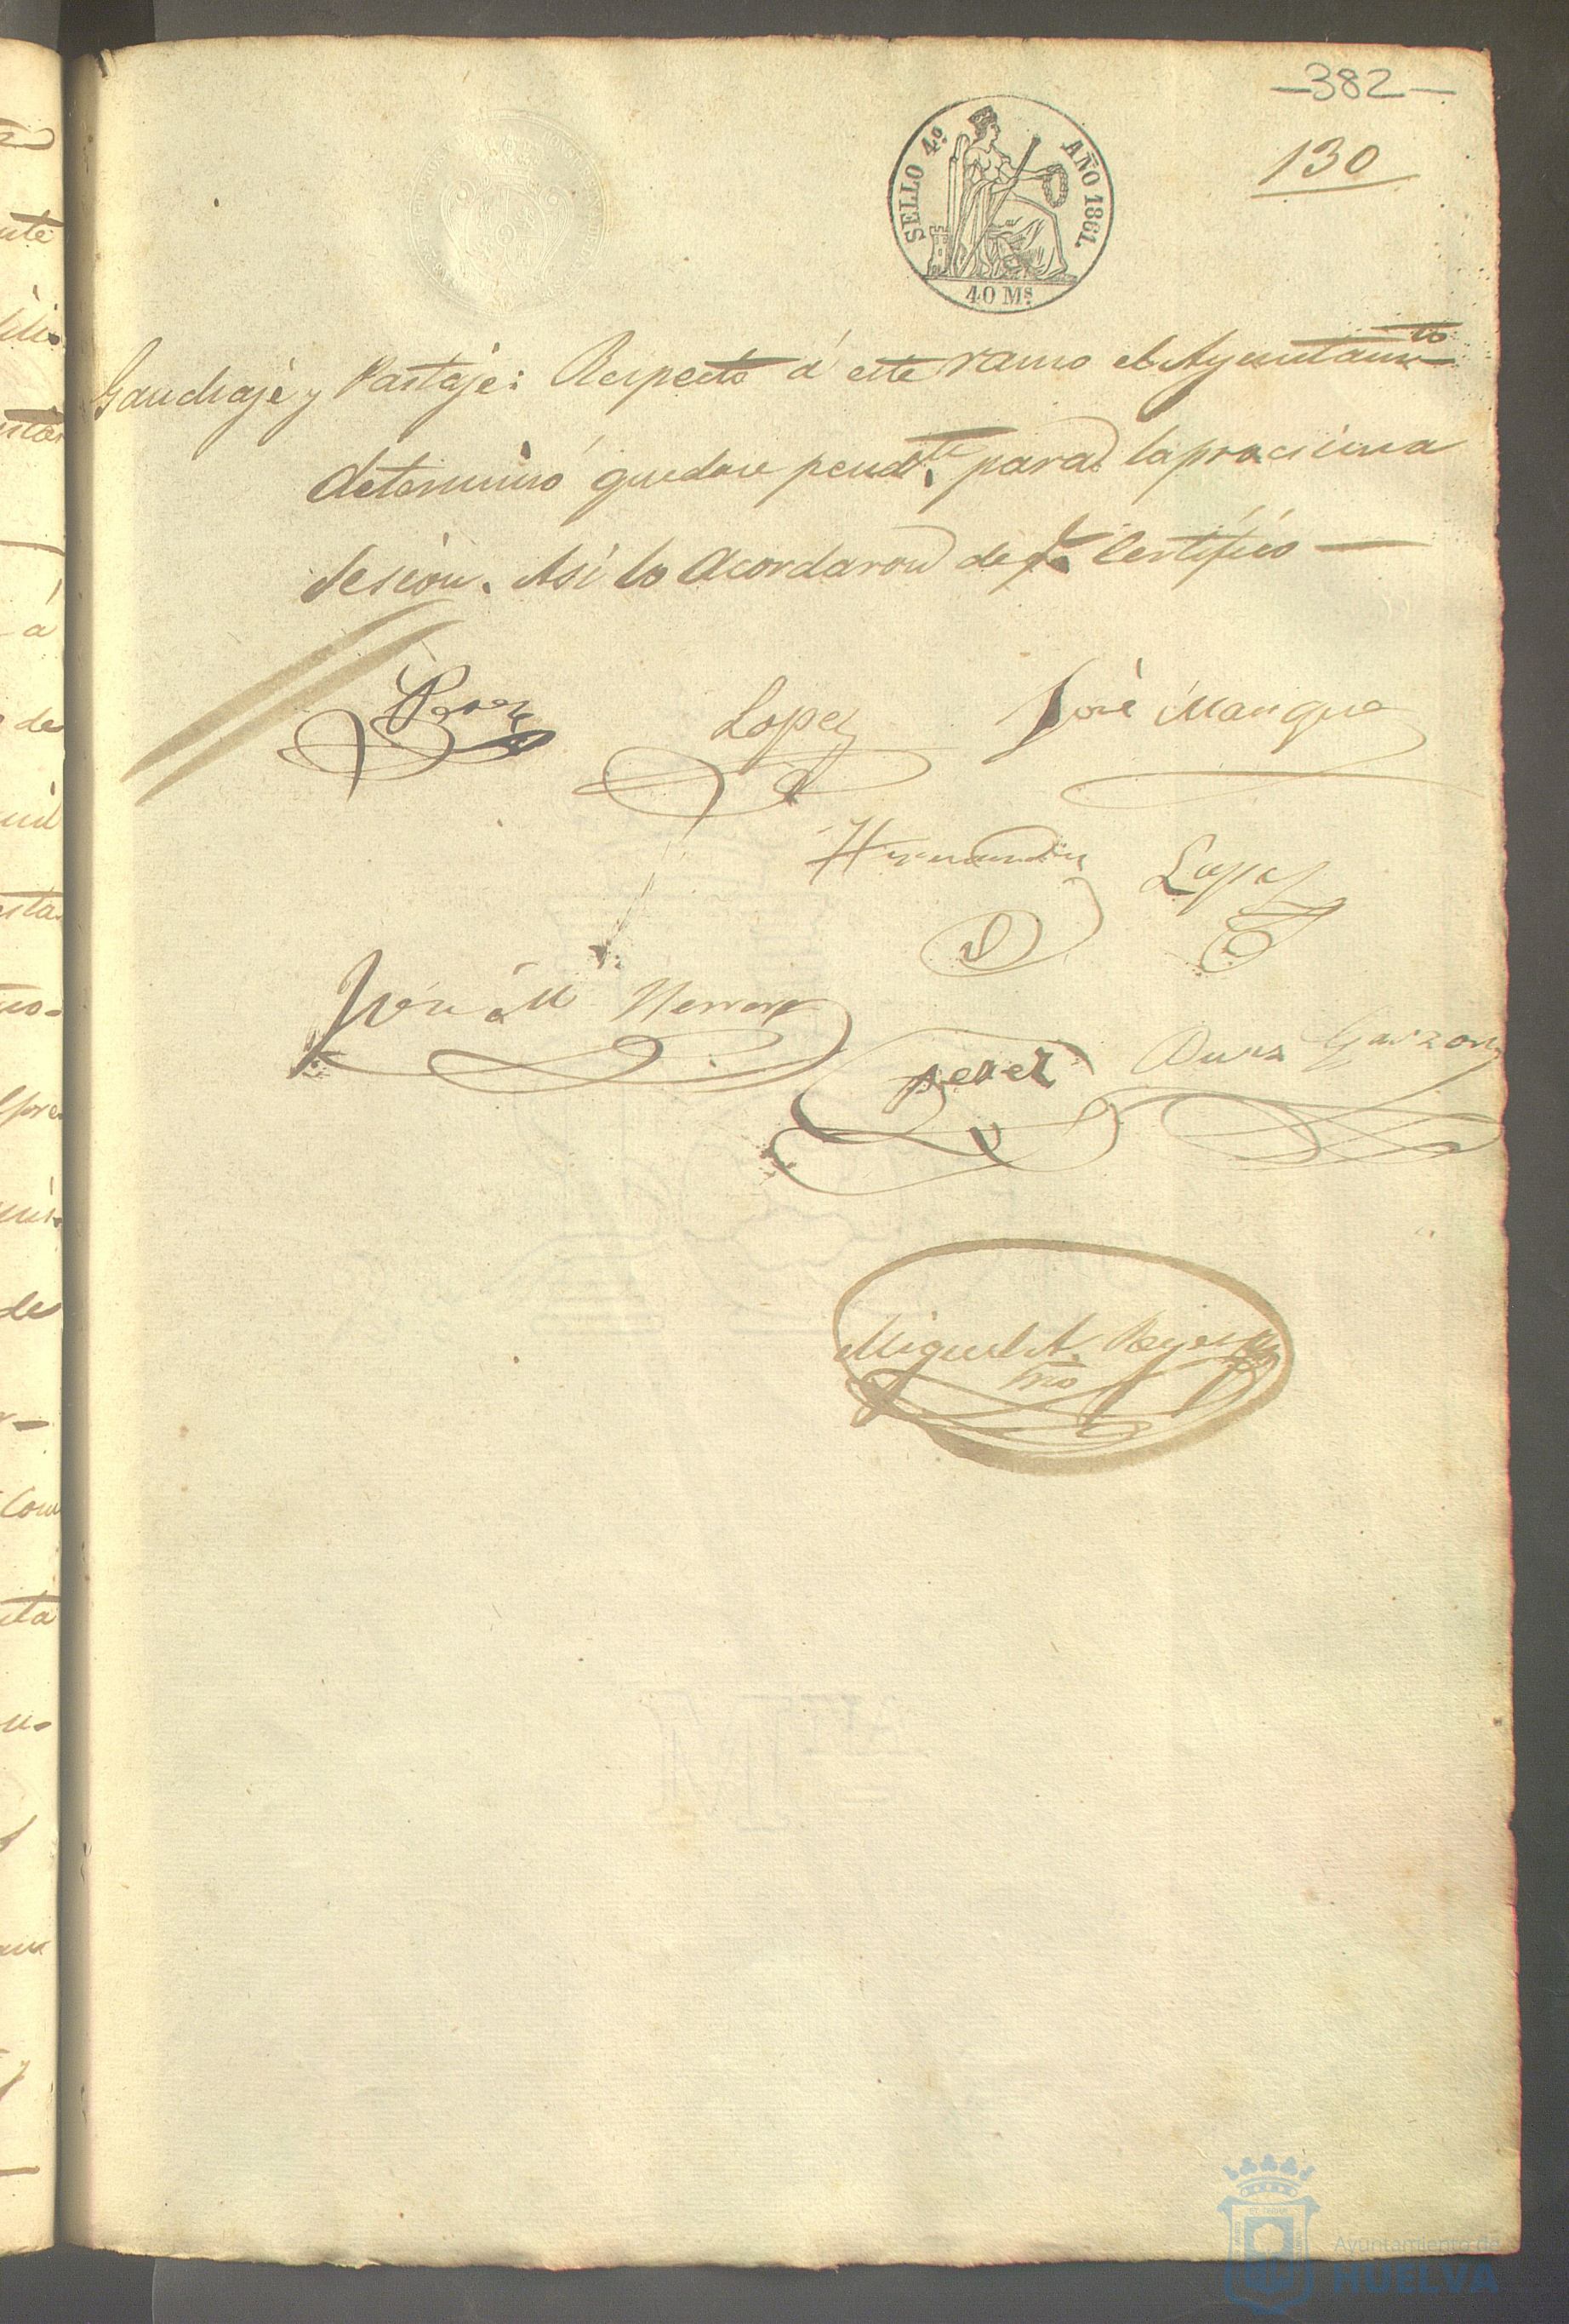 -382-
130
SELLO 4.º AÑO 1861.
40 Ms.
Ganchaje y Pastaje: Respecto á este ramo el Ayuntamto
determinó quedase pendte. para la procsima
Sesion. Asi lo Acordaron de qe Certifico —
Perez
Lopez
José Manque
Hernandez
Lopez
José Ma Herrera
Perez
Garzon
Miguel A. Reyes
Srio
Ayuntamiento de
HUELVA